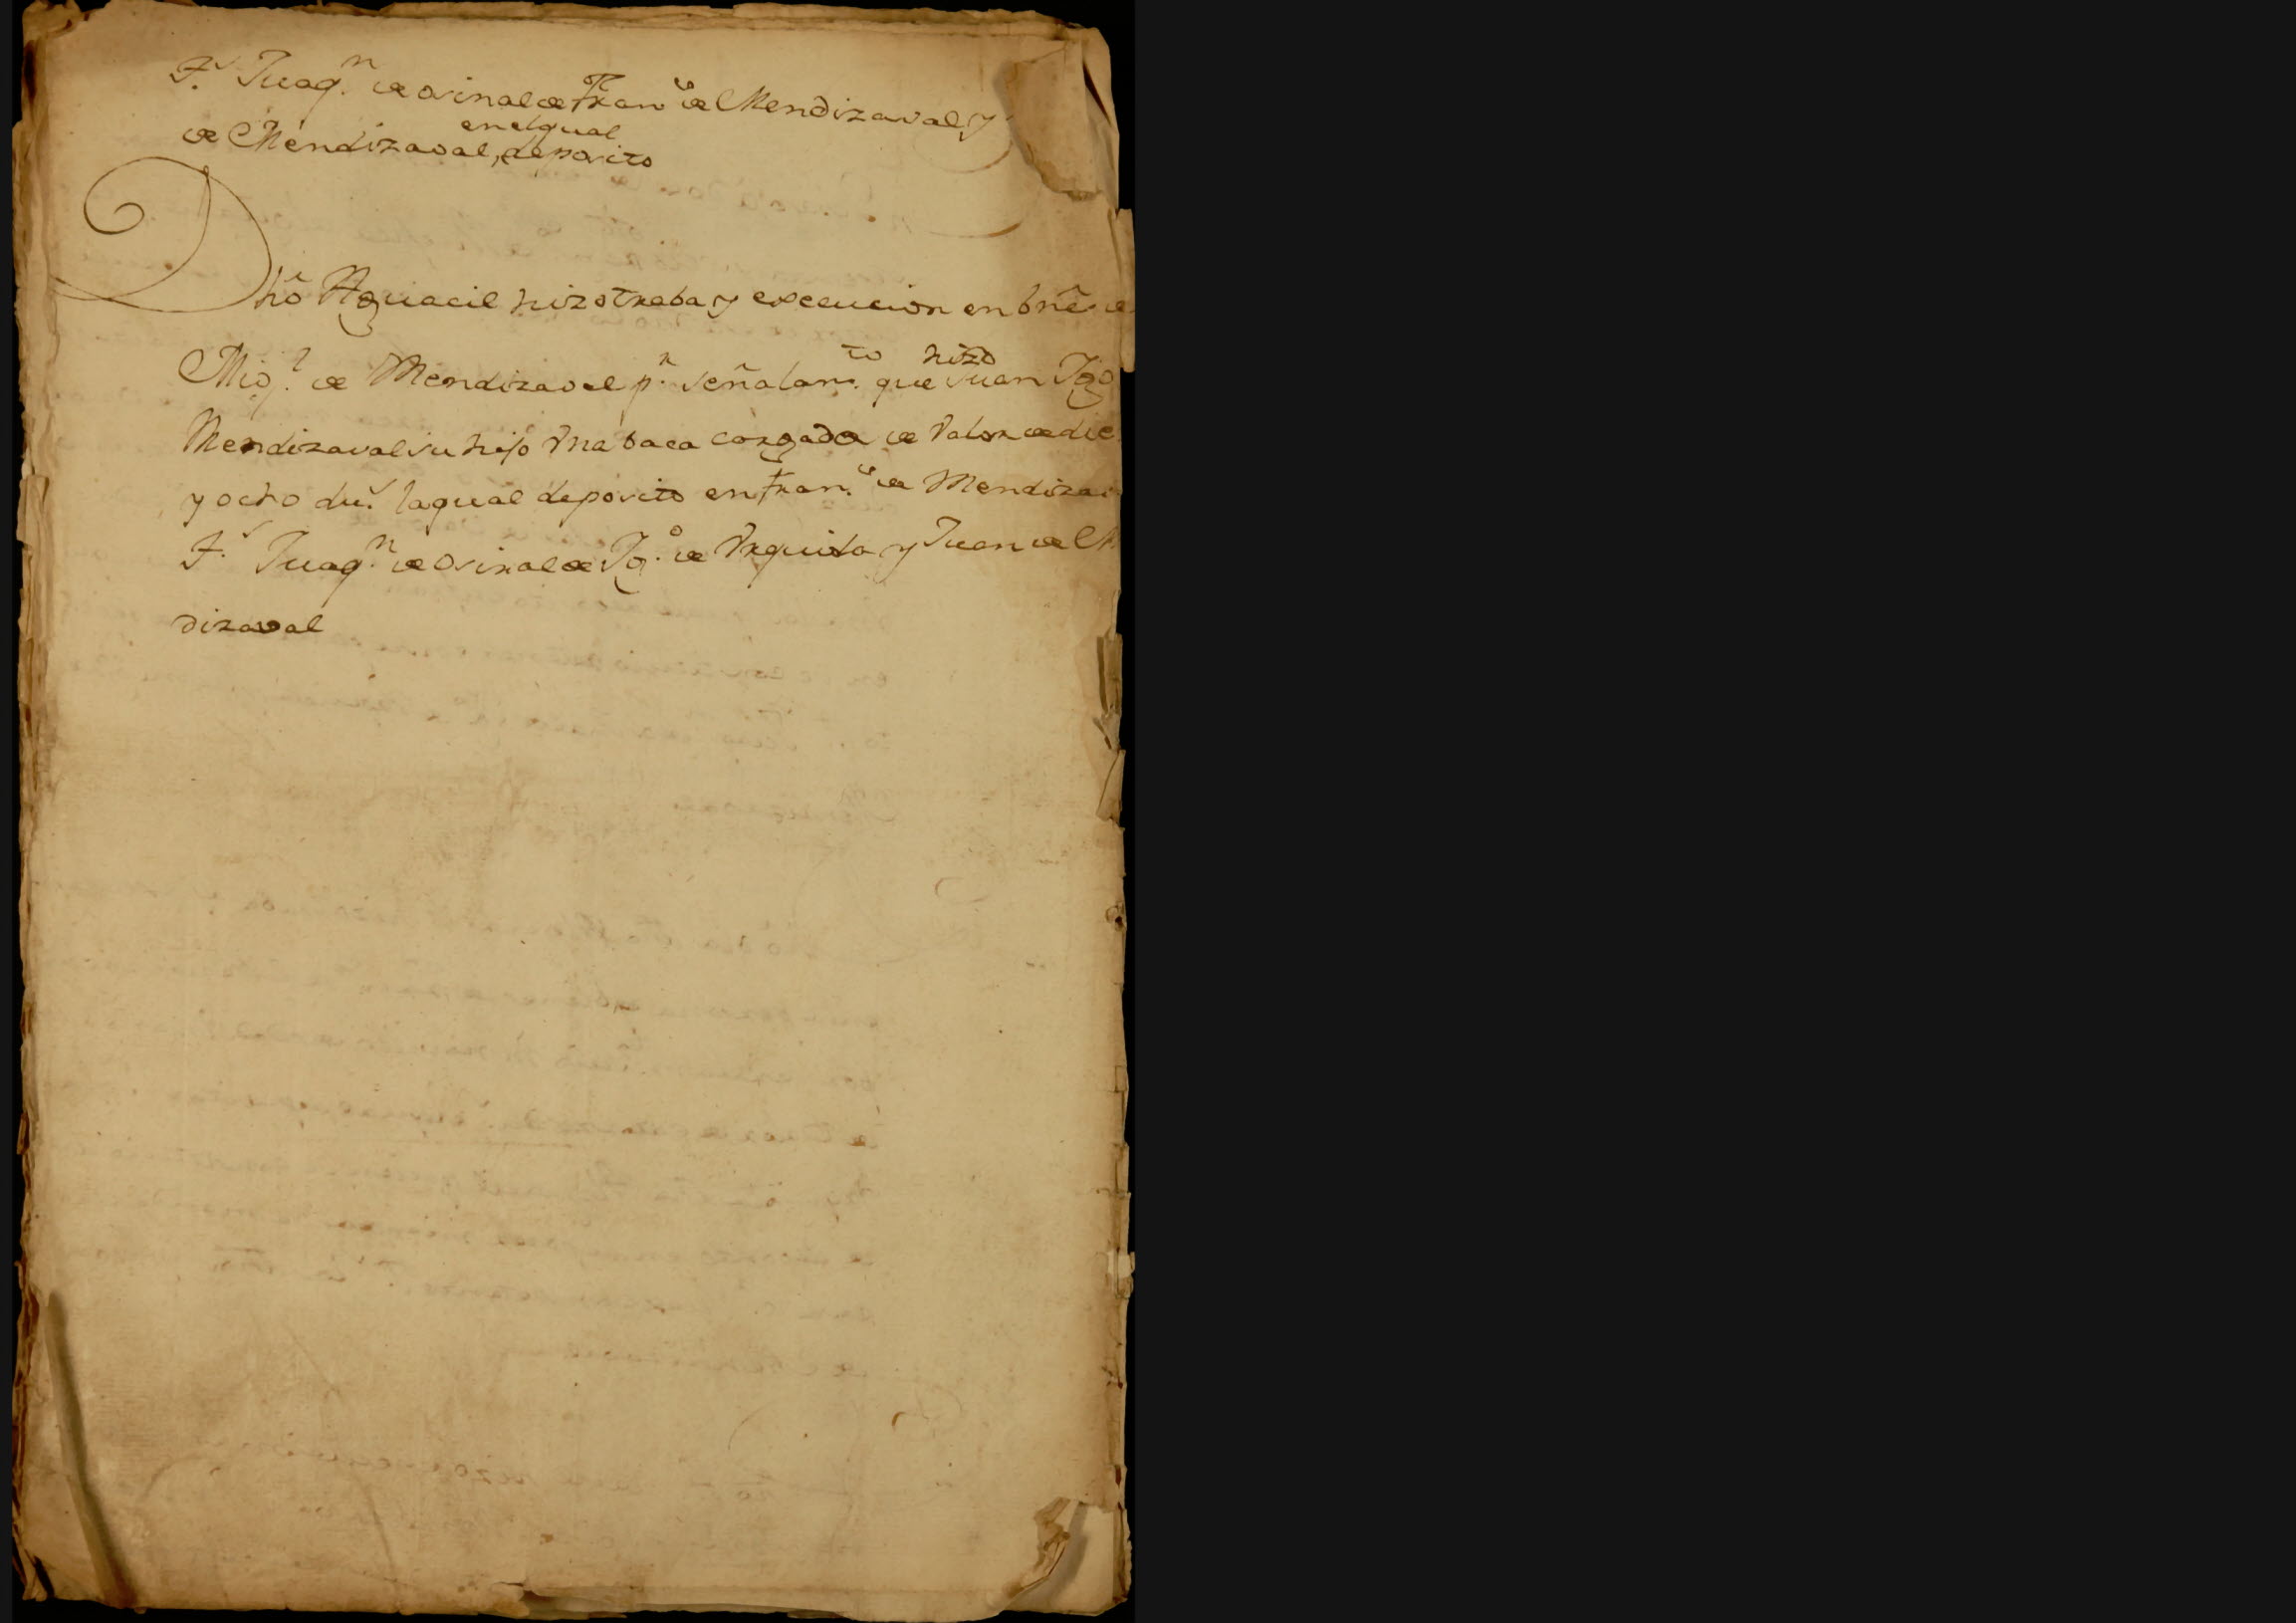 T.s Juaq.n de Osinalde Fran.co de Mendizaval, y
en el qual
de Mendizaval, deposito
Dho Alguacil hizo traba y execucion en bns de
to hizo
Mig.l de Mendizaval p.r señalam.to que Juan Ig.o
Mendizaval su hijo Vna baca cargada de Valor de die
y ocho du.s la qual deposito en Fran.co de Mendizav
T.s Juaq.n de Osinalde Ig.o de Vrquita y Juan de M
dizaval